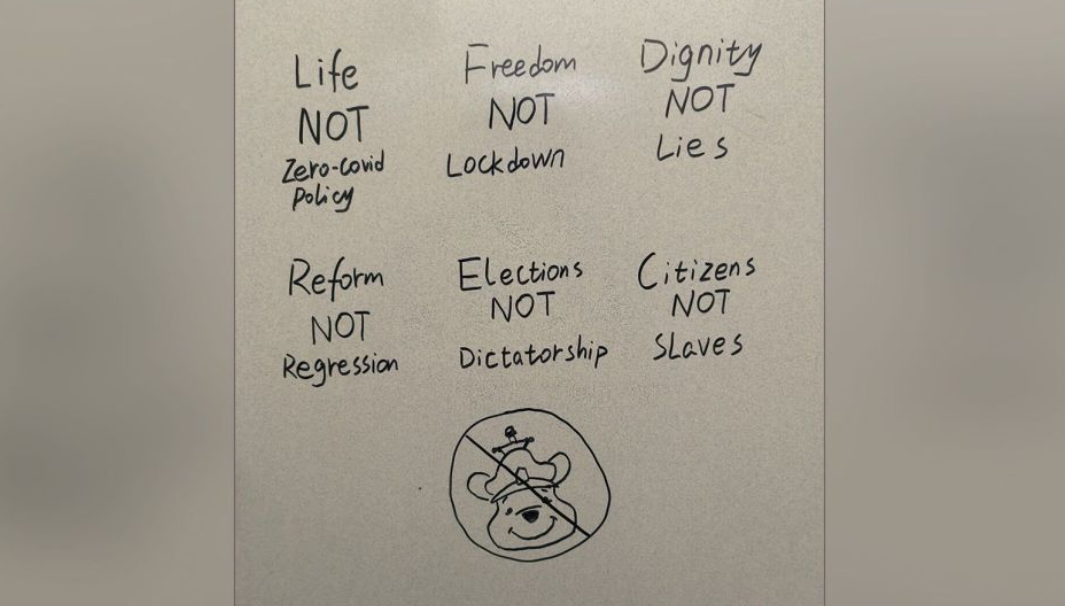 Life
NOT
Zero-Covid
Policy
Freedom
NOT
Lockdown
Dignity
NOT
Lies
Reform
NOT
Regression
Elections
NOT
Dictatorship
Citizens
NOT
SLaves